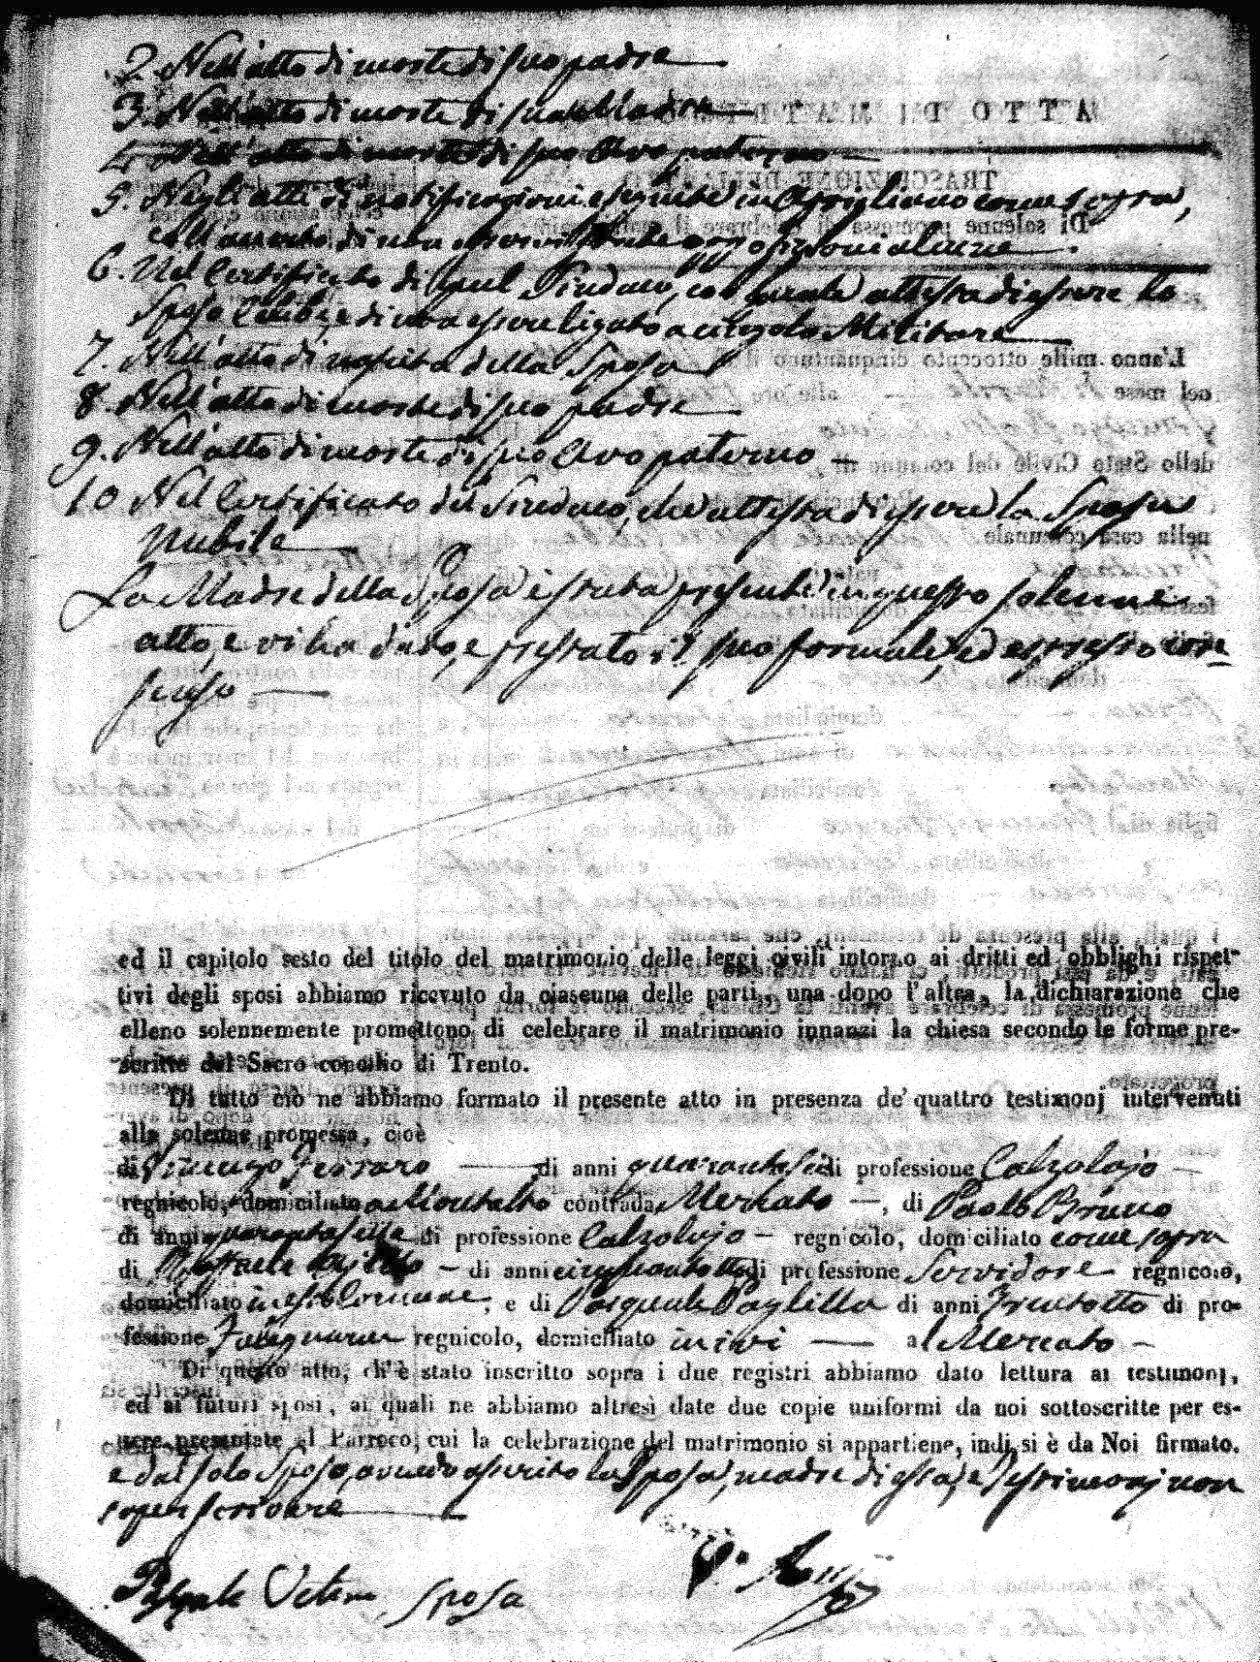 2. Nell'atto di morte di suo padre
3. Nell'atto di morte di sua Madre
4. Nell'atto di morte di suo Avo paterno
5. Negli atti di notificazioni eseguite in Aprigliano come sopra,
coll'assento di non esservi state opposizioni alcune
6. Nel Certificato di quel Sindaco, col quale attesta di essere lo
Sposo Celibe, e di non essere ligato a cingolo Militare
7. Nell'atto di nascita della Sposa
8. Nell'atto di morte di suo padre
9. Nell'atto di morte di suo Avo paterno
10 Nel Certificato del Sindaco, che attesta di essere la Sposa
Nubile
La Madre della Sposa è stata presente in questo solenne
atto, e vi ha dato, e prestato il suo formale, ed espresso con-
senso
ed il capitolo sesto del titolo del matrimonio delle leggi civili intorno ai dritti ed obblighi rispet-
tivi degli sposi abbiamo ricevuto da ciascuna delle parti, una dopo l'altra, la dichiarazione che
elleno solennemente promettono di celebrare il matrimonio innanzi la chiesa secondo le forme pre-
scritte dal Sacro concilio di Trento.
Di tutto ciò ne abbiamo formato il presente atto in presenza de' quattro testimonj intervenuti
alla solenne promessa, cioè
di Vincenzo Ferraro di anni quarantasei di professione Calzolajo
regnicolo, domiciliato a Montalto contrada Mercato, di Paolo Bruno
di anni quarantasette di professione Calzolajo regnicolo, domiciliato come sopra
di Raffaele di anni cinquantotto di professione Servidore regnicolo,
domiciliato in esso Comune, e di Pasquale Paglilla di anni Trentotto di pro-
fessione Falegname regnicolo, domiciliato in ivi al Mercato
Di questo atto, ch'è stato inscritto sopra i due registri abbiamo dato lettura ai testimonj,
ed ai futuri sposi, ai quali ne abbiamo altresì date due copie uniformi da noi sottoscritte per es-
sere presentate al Parroco, cui la celebrazione del matrimonio si appartiene, indi si è da Noi firmato.
e dal solo Sposo, avendo asserito la Sposa, madre di essa, e Testimonj non
saper scrivere
Pasquale sposo